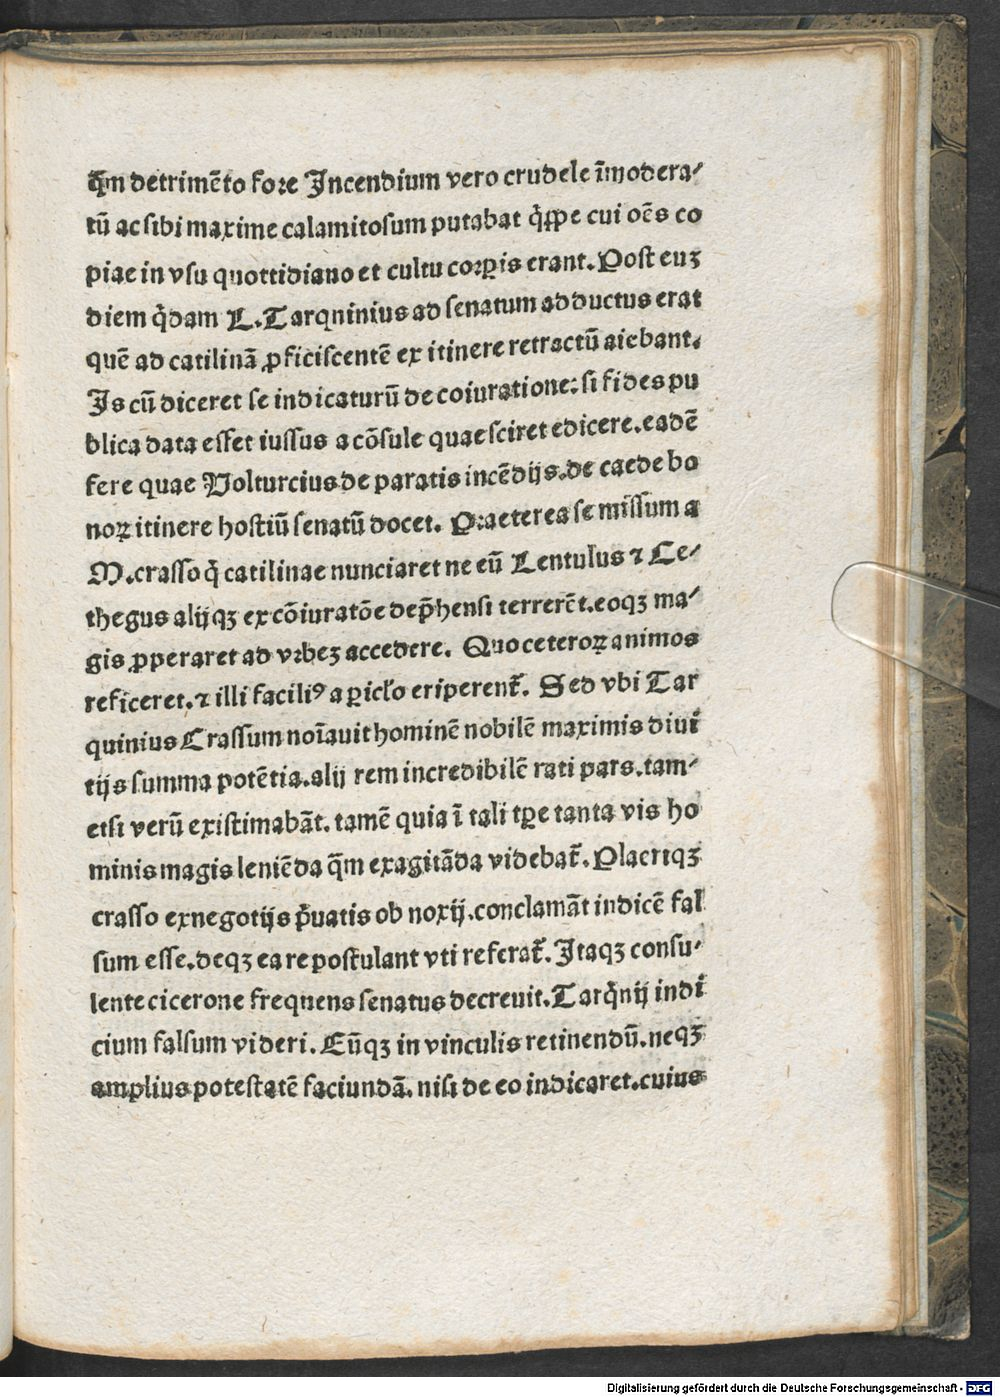 q̄m detrimēto fore Incendium vero crudele īmodera-
tū ac sibi maxime calamitosum putabat q̇ꝑpe cui oēs co
piae in vsu quottidiano et cultu corꝑis erant. Post euꝫ
diem q̇dam L. Tarqninius ad senatum adductus erat
quē ad catilinā ꝓficiscentē ex itinere retractū aiebant.
Is cū diceret se indicaturū de coiuratione: si fides pu
blica data esset iussus a cōsule quae sciret edicere. eadē
fere quae Volturcius de paratis incēdijs. de caede bo
noꝝ itinere hostiū senatū docet. Praeterea se missum a
M. crasso q̇ catilinae nunciaret ne eū Lentulus ⁊ Ce-
thegus alijqꝫ ex cōiuratōe dep̄hensi terrerēt. eoqꝫ ma-
gis ꝓperaret ad vrbeꝫ accedere. Quo ceteroꝝ animos
reficeret. ⁊ illi faciliꝰ a ꝑiclo eriperent̄. Sed vbi Tar
quinius Crassum noīauit hominē nobilē maximis diui
tijs summa potētia. alij rem incredibilē rati pars. tam-
etsi verū existimabāt. tamē quia ī tali tꝑe tanta vis ho
minis magis leniēda q̄m exagitāda videbat̄. Placriqꝫ
crasso ex negotijs p̄uatis obnoxij. conclamāt indicē fal
sum esse. deqꝫ ea re postulant vti referat̄. Itaqꝫ consu-
lente cicerone frequens senatus decreuit. Tarq̇nij indi
cium falsum videri. Eūqꝫ in vinculis retinendū. neqꝫ
amplius potestatē faciundā. nisi de eo indicaret. cuius
Digitalisierung gefördert durch die Deutsche Forschungsgemeinschaft - DFG